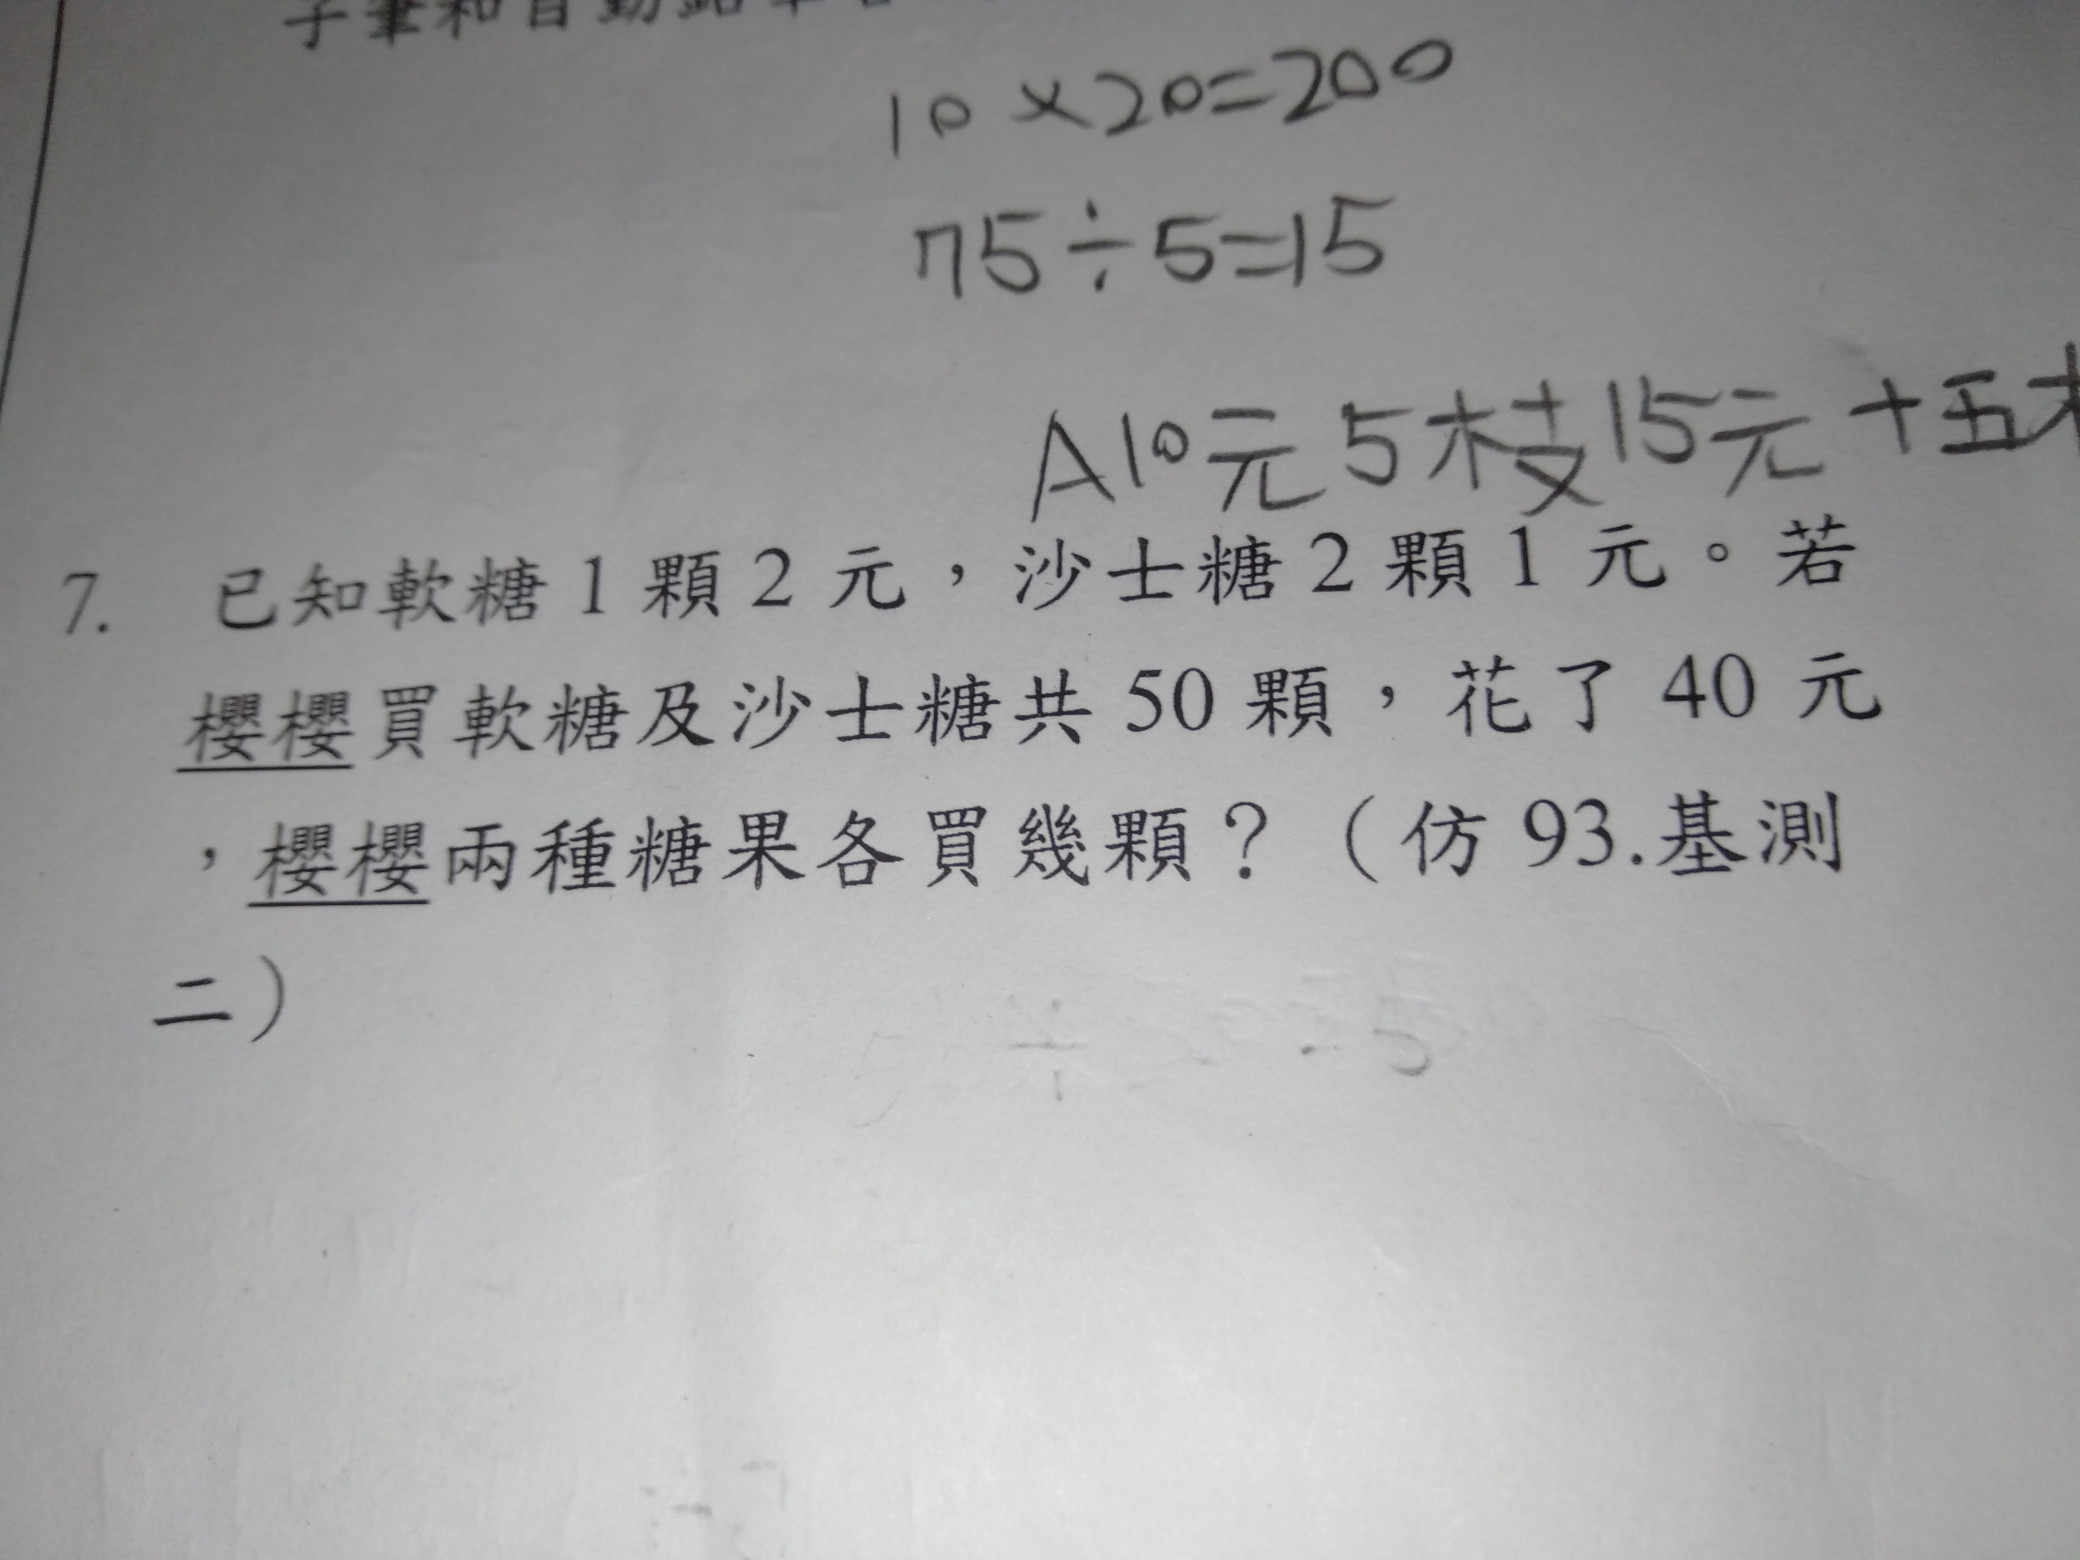 子筆和自動鉛筆各
10×20=200
75÷5=15
A10元5枝15元十五
7. 已知軟糖1顆2元，沙士糖2顆1元。若
櫻櫻買軟糖及沙士糖共50顆，花了40元
，櫻櫻兩種糖果各買幾顆？（仿93.基測
二）